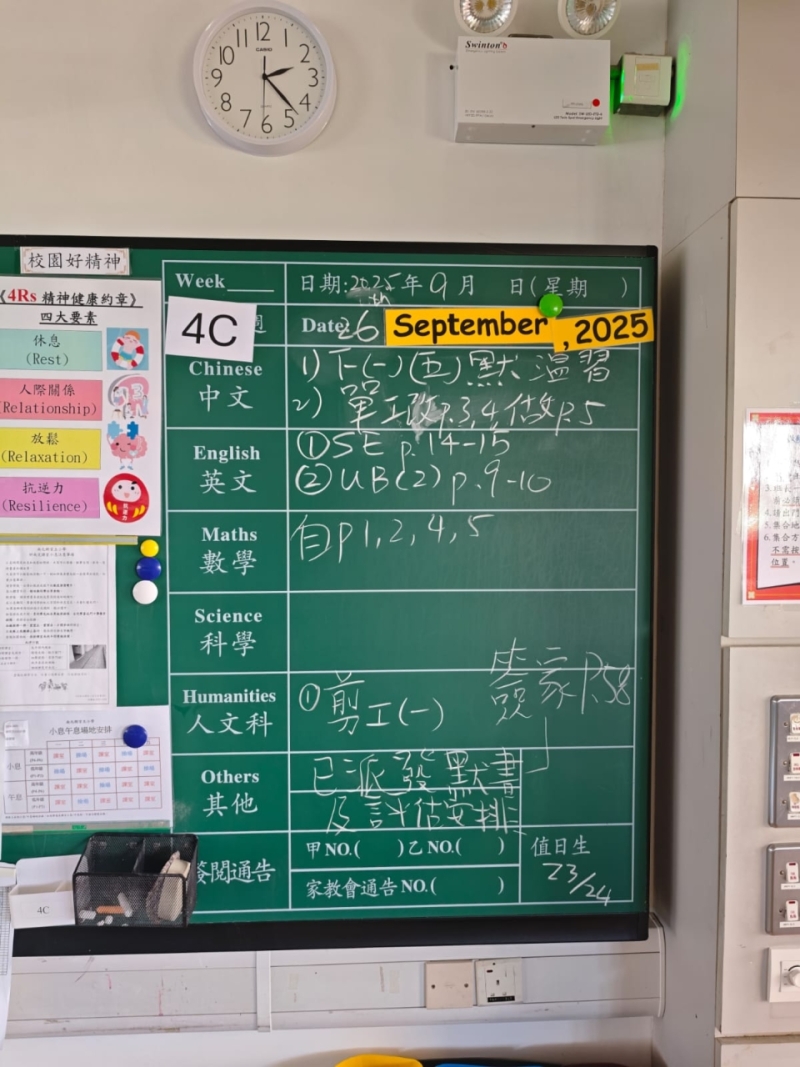 12
1
2
3
4
5
6
7
8
9
10
11
CASIO
QUARTZ
Swinton
校園好精神
《4Rs 精神健康約章》
四大要素
休息
(Rest)
人際關係
(Relationship)
放鬆
(Relaxation)
抗逆力
(Resilience)
小息午息場地安排
小息
午息
4C
Week
日期:2025年9月 日(星期 )
4C 週
Date: 26th September, 2025
Chinese
中文
1) 下(一)(五)默 溫習
2) 單工改p.3,4 估做p.5
English
英文
①SE p.14-15
②UB(2) p.9-10
Maths
數學
自p1,2,4,5
Science
科學
Humanities
人文科
①剪工(一)
簽家P.58
Others
其他
已派發默書
及評估安排
簽閱通告
甲NO.( )乙NO.( )
家教會通告NO.( )
值日生
23/24
不需按
位置。